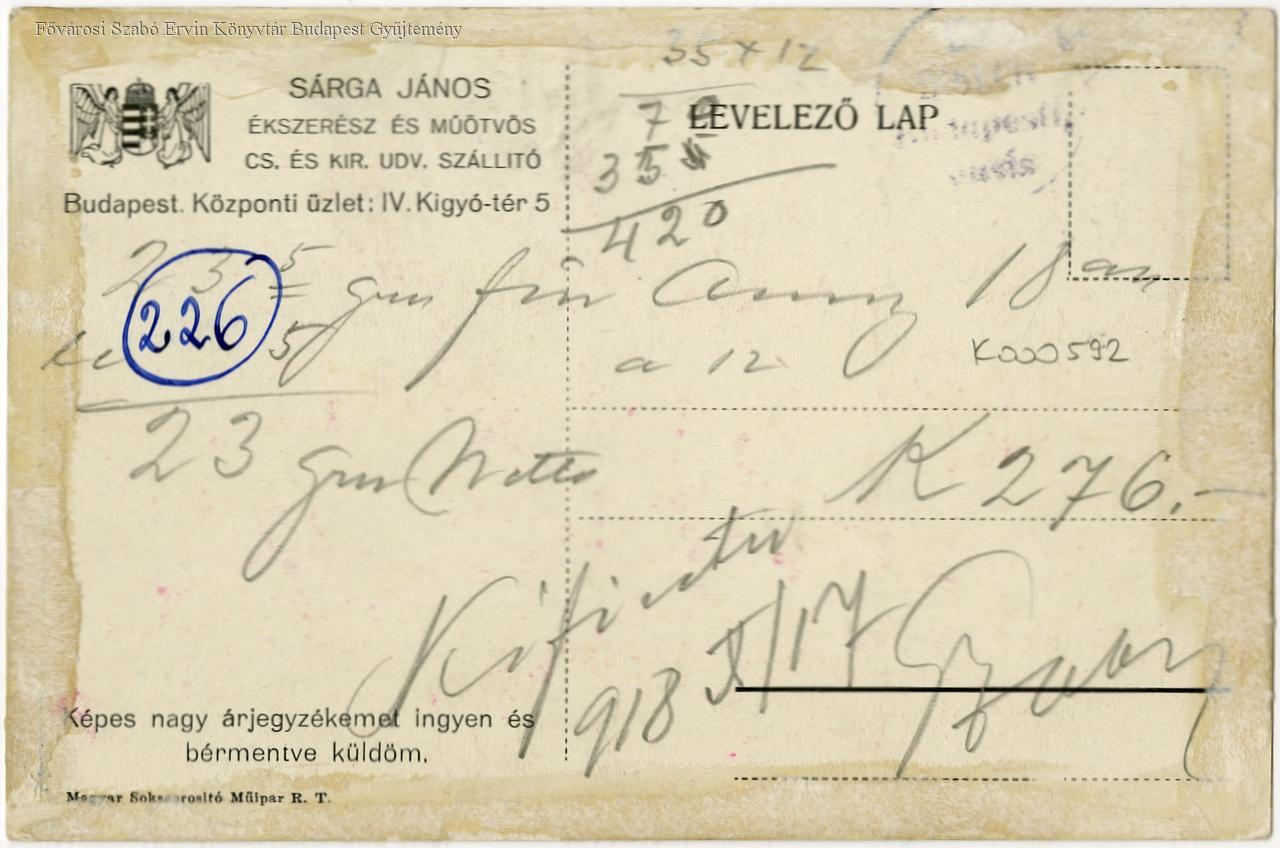 Fővárosi Szabó Ervin Könyvtár Budapest Gyűjtemény
SÁRGA JÁNOS
ÉKSZERÉSZ ÉS MŰÖTVÖS
CS. ÉS KIR. UDV. SZÁLLITÓ
Budapest. Központi üzlet: IV. Kigyó-tér 5
35 x 12
LEVELEZŐ LAP
70
35
420
226
5
gm fin Arany 18
a 12
K000592
23 gm Netto
K 276.-
Kifizetve
918 X/17
Képes nagy árjegyzékemet ingyen és
bérmentve küldöm.
Magyar Sokszorositó Műipar R. T.